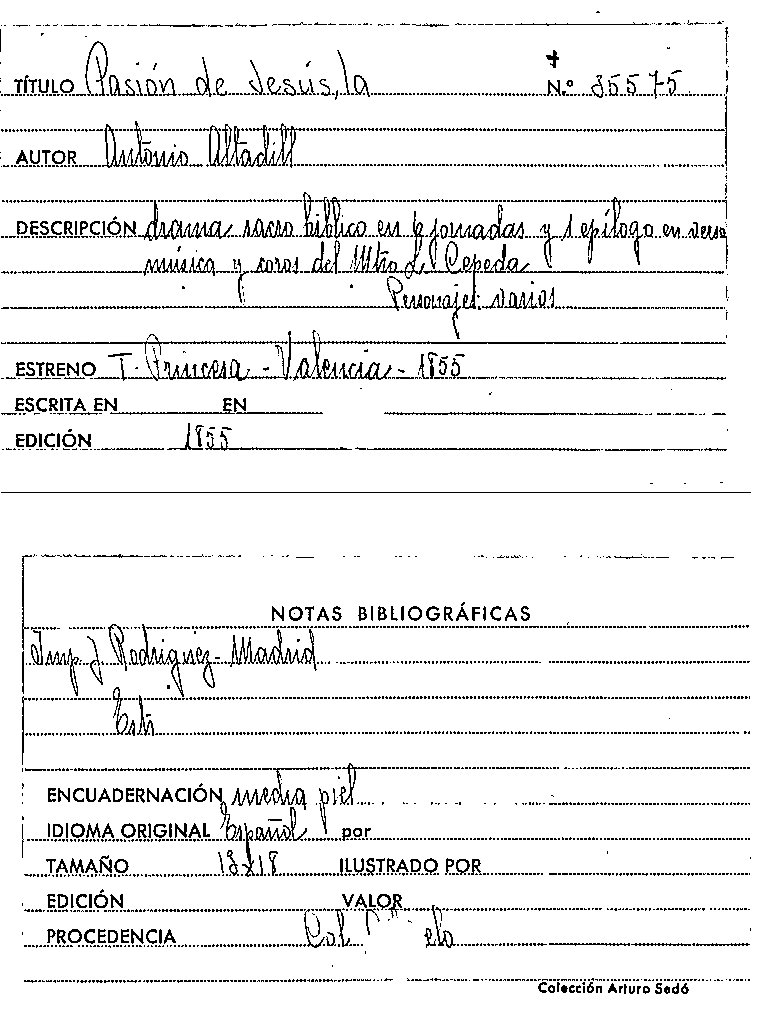 TÍTULO Pasión de Jesús, la N.º 35575
AUTOR Antonio Altadill
DESCRIPCIÓN drama sacro bíblico en 6 jornadas y 1 epílogo en verso
música y coros del Mtro L. Cepeda
Personajes: varios
ESTRENO T. Princesa - Valencia - 1855
ESCRITA EN EN
EDICIÓN 1855
NOTAS BIBLIOGRÁFICAS
Imp. J Rodriguez - Madrid
ENCUADERNACIÓN media piel
IDIOMA ORIGINAL Español por
TAMAÑO 13x18 ILUSTRADO POR
EDICIÓN VALOR
PROCEDENCIA Col.
Colección Arturo Sedó